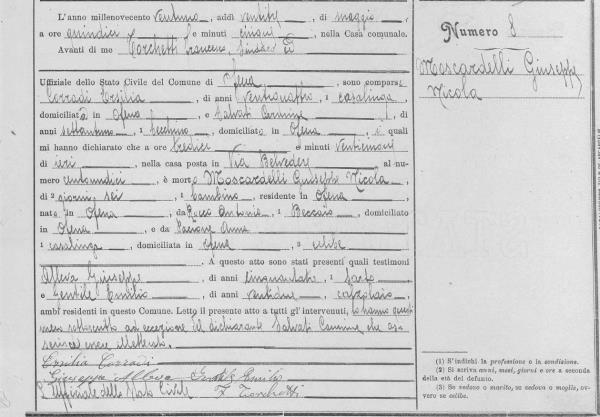 L'anno millenovecento ventuno, addì ventitré, di maggio,
a ore quindici e minuti cinque, nella Casa comunale.
Avanti di me Torchetti Francesco, Sindaco
Uffiziale dello Stato Civile del Comune di Ofena, sono comparsi
Corradi Ersilia, di anni ventiquattro, casalinga,
domiciliata in Ofena, e Salvati Carmine, di
anni settantuno, domiciliato in Ofena, quali
mi hanno dichiarato che a ore tredici e minuti ventinove
di ieri, nella casa posta in Via Belvedere, al nu-
mero centoundici, è morto Moscardelli Giuseppe Nicola,
di (2) giorni sei, bambino, residente in Ofena,
nato in Ofena, da Rocco Antonio, Beccaio, domiciliato
in Ofena, e da Anna
casalinga, domiciliata in Ofena, (3) celibe
A questo atto sono stati presenti quali testimoni
Alleva Giuseppe, di anni cinquantatre, sarto,
e Gentile Emilio, di anni ventidue, calzolaio,
ambi residenti in questo Comune. Letto il presente atto a tutti gl' intervenuti, lo hanno questi
meco sottoscritto ad eccezione del dichiarante Salvati Carmine che as-
serisce essere illetterato.
Ersilia Corradi
Giuseppe Alleva Gentile Emilio
L'Uffiziale dello Stato Civile F. Torchetti
Numero 8
Moscardelli Giuseppe
Nicola
(1) S'indichi la professione o la condizione.
(2) Si scriva anni, mesi, giorni e ore a seconda
della età del defunto.
(3) Se vedovo o marito, se vedova o moglie, ov-
vero se celibe.